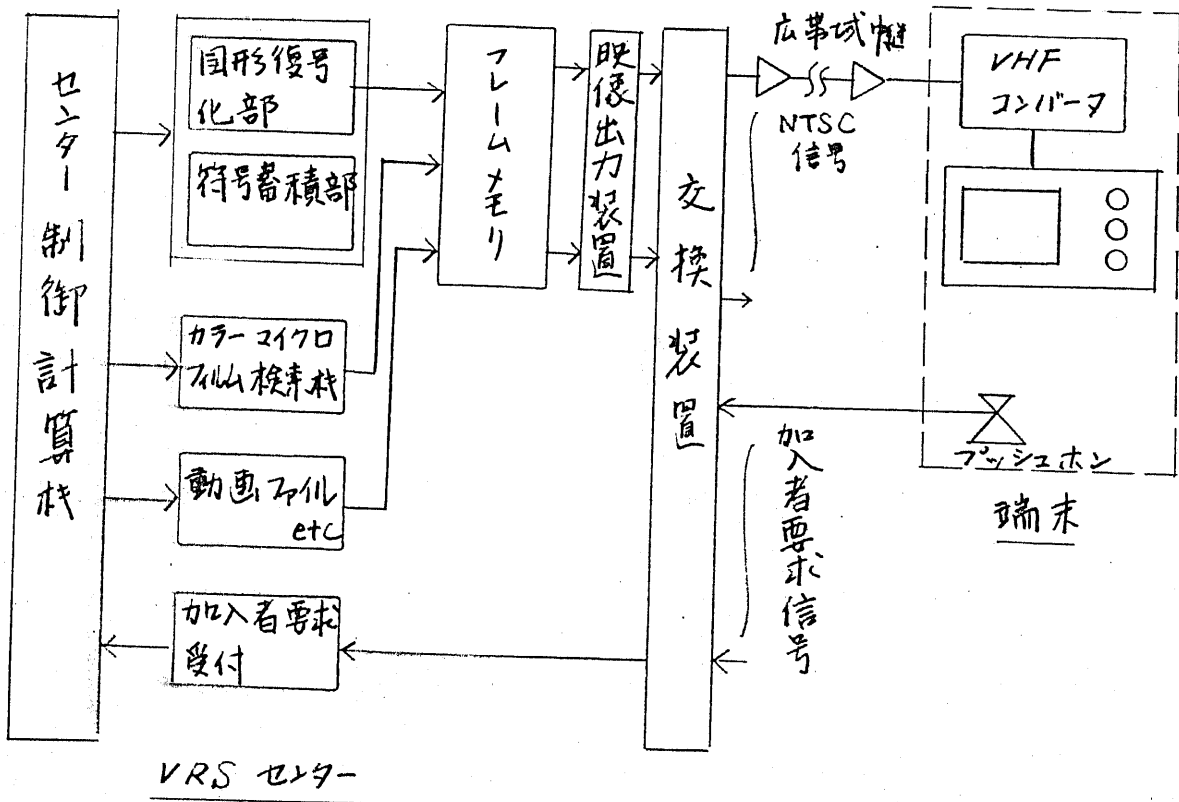 センター制御計算机
図形復号
化部
符号蓄積部
カラーマイクロ
フィルム検索机
動画ファイル
etc
加入者要求
受付
フレームメモリ
映像出力装置
交換装置
広帯域中継
NTSC
信号
加入者要求信号
VHF
コンバータ
プッシュホン
端末
VRS センター